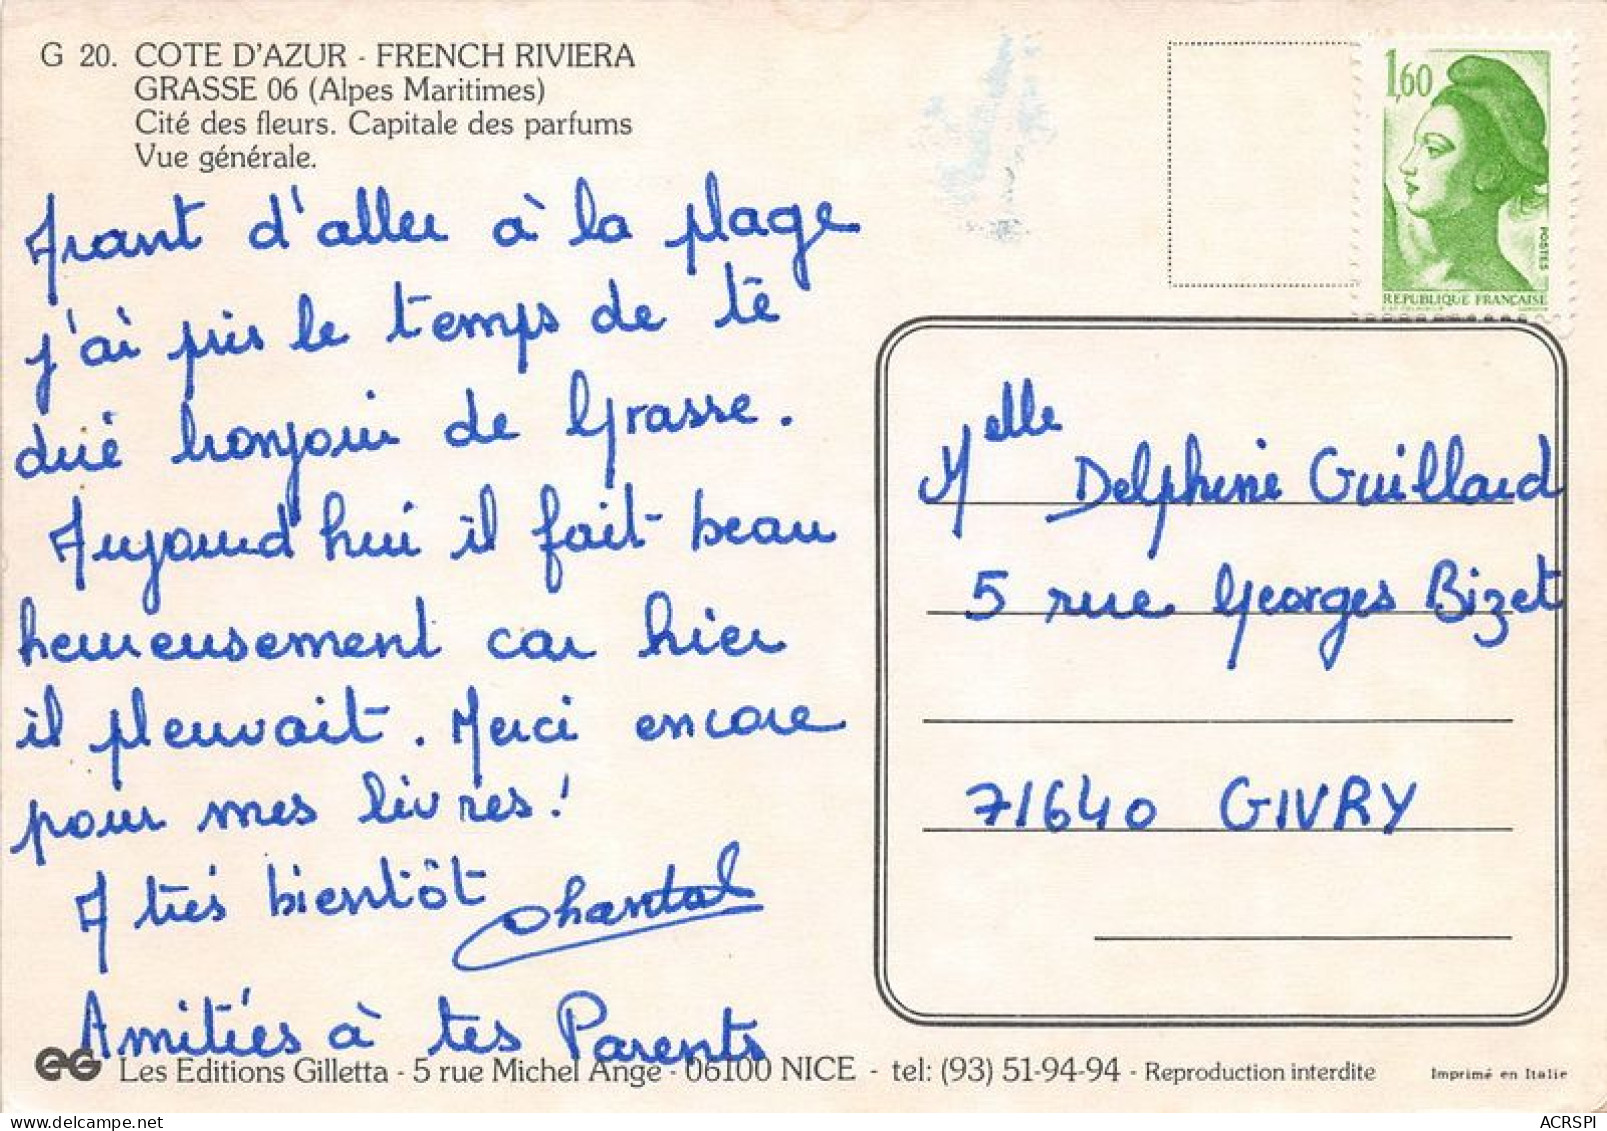 G 20. COTE D'AZUR - FRENCH RIVIERA
GRASSE 06 (Alpes Maritimes)
Cité des fleurs. Capitale des parfums
Vue générale.
Avant d'aller à la plage
j'ai pris le temps de te
dire bonjour de Grasse.
Aujourd'hui il fait beau
heureusement car hier
il pleuvait. Merci encore
pour mes livres!
A très bientôt Chantal
Amitiés à tes Parents
1,60
POSTES
REPUBLIQUE FRANÇAISE
Melle Delphine Guillard
5 rue Georges Bizet
71640 GIVRY
EG Les Editions Gilletta - 5 rue Michel Ange - 06100 NICE - tel: (93) 51-94-94 - Reproduction interdite Imprimé en Italie
ACRSPI